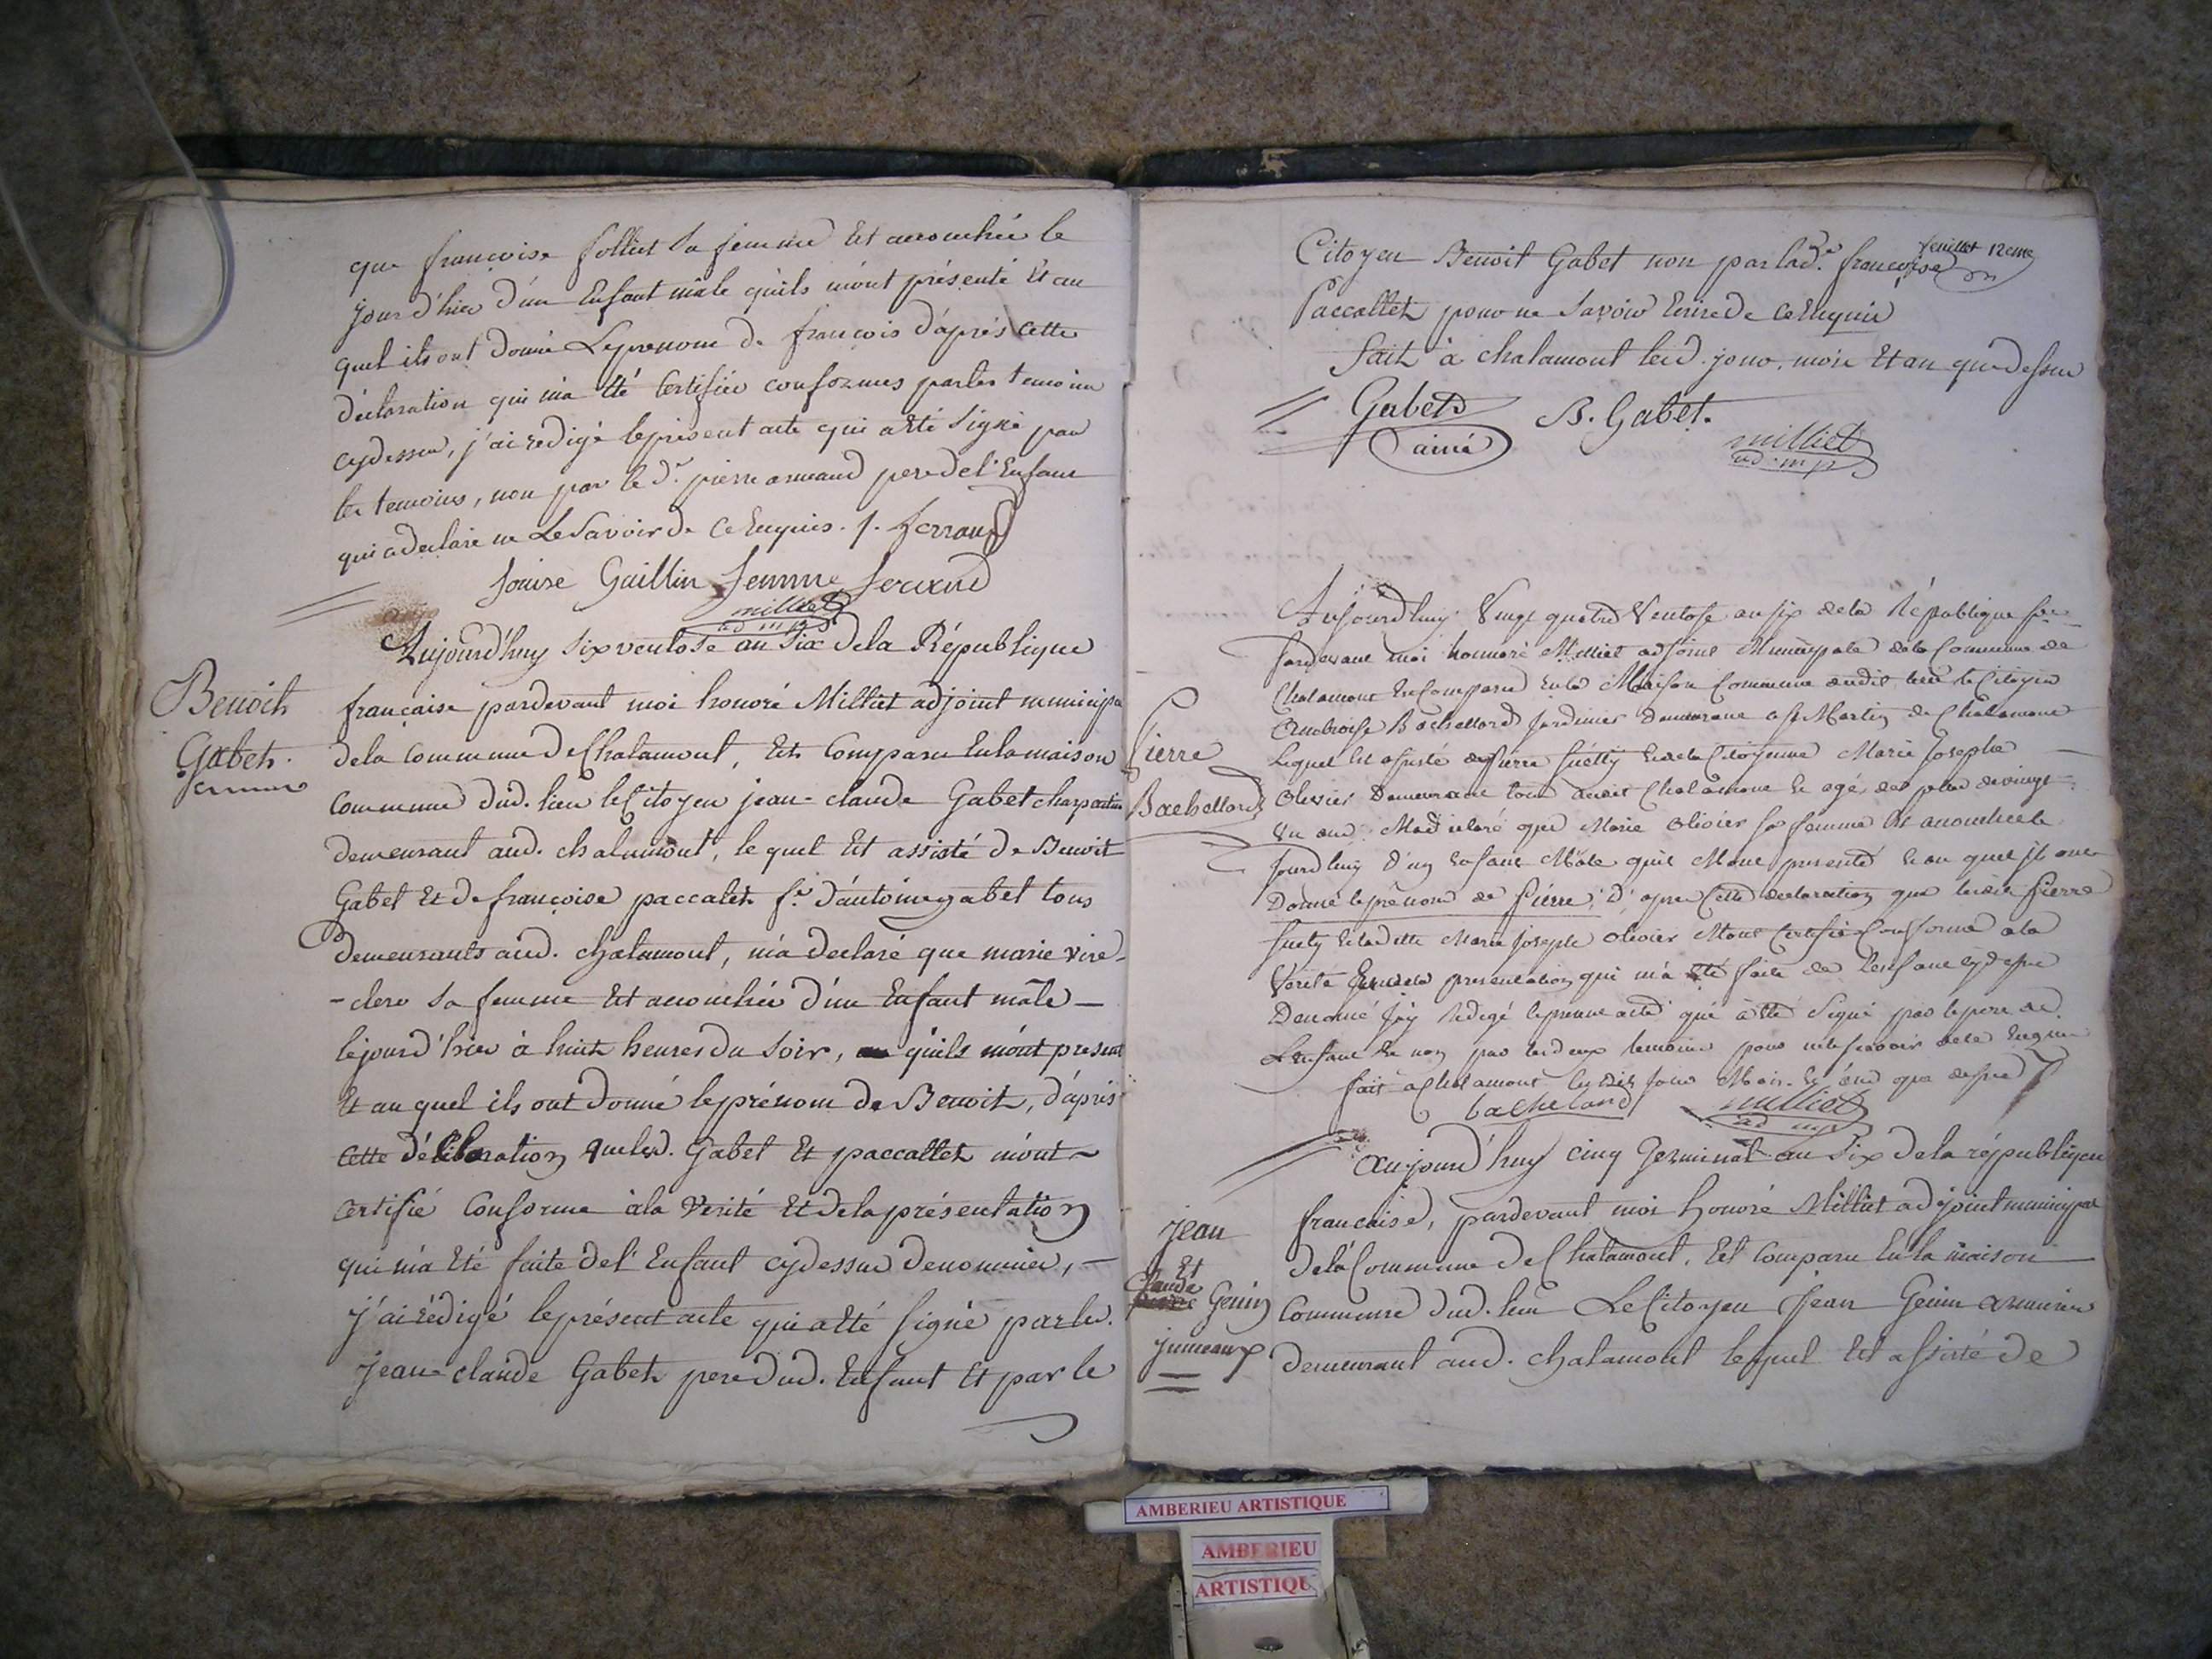 que françoise folliet sa femme Est accouchée le
jourd'hier d'un Enfant mâle qu'ils m'ont présenté Et au
quel ils ont donné Le prenom de françois d'après cette
déclaration qui m'a été Certifiée conformes par les temoins
cydessus, j'ai redigé le présent acte qui a été signé par
les temoins, non par le d. pierre armand pere de l'Enfant
qui a declaré ne Le Savoir de ce Enquis. j. ferrand
Louise Gaillin femme ferrand
milliet
ad. mp.
Aujourd'huy six ventose an six de la République
Benoith
Gabet.
française pardevant moi honoré Milliet adjoint municipa
de la commune de Chalamont, Est Comparu En la maison
commune dud. lieu le Citoyen jean-claude Gabet charpentier
demeurant aud. chalamont, le quel Est assisté de Benoit
Gabet Et de françoise paccalet fe. d'antoine gabet tous
demeurants aud. chalamont, m'a declaré que marie vire-
-clere sa femme Est accouchée d'un Enfant mâle -
le jourd'hier à huit heures du soir, qu'ils m'ont présent
Et au quel ils ont donné le prénom de Benoit, d'après
cette déliberation que lesd. Gabet Et paccallet m'ont ~
certifié Conforme à la Verité Et de la présentation
qui m'a Eté faite de l'Enfant cydessus denommé, -
j'ai rédigé le présent acte qui a été signé par led.
jean-claude Gabet pere dud. Enfant Et par le
feuillet 12eme
Citoyen Benoit Gabet non par lad.e françoise
Paccallet pour ne Savoir Ecrire de ce Enquis
fait à chalamont les d. jour, mois Et an que dessus
Gabet
ainé
B. Gabet.
milliet
ad. mp.
Aujourdhuy Vingt quatre Ventose an six de la République fse
Pardevant moi honnoré Milliet adjoint Municipale de la Commune de
Chalamont Est Comparu En la Maison Commune dudit lieu le Citoyen
Pierre
Bachellard
Ambroise Bachellard Jardinier demeurant a St Martin de Chalamont
Lequel Est assisté de Pierre Suetty Et de la Citoyenne Marie Josephe
Olivier Demeurant tous audit Chalamont Et agé de plus de vingt
Un ans Ma déclaré que Marie Olivier sa femme Est accouchée le
Jourdhuy d'un Enfant Mâle quil Mont presenté Et au quel Il ont
Donné le prénom de Pierre, d'apres Cette declaration que ledit Pierre
Suety Et laditte Marie Josephe Olivier Mont Certifié Conforme a la
Verité Et de la presentation qui m'a été faite de Lenfant cydessus
Denomé Jay Redigé le present acte qui à été Signé par le pere de
Lenfant Et non par les deux temoins pour ne le scavoir de ce Enquis
fait a Chalamont les dits Jour Mois Et and que dessus
bachelard
milliet
ad. mp.
aujourd'huy cinq Germinal an six de la république
jean
Et
Claude
Genin
jumeaux
française, pardevant moi honoré Milliet adjoint municipal
de la Commune de Chalamont, Est Comparu En la maison
commune dud. lieu Le Citoyen Jean Genin armurier
demeurant aud. chalamont lequel Est assisté de
AMBERIEU ARTISTIQUE
AMBERIEU
ARTISTIQUE